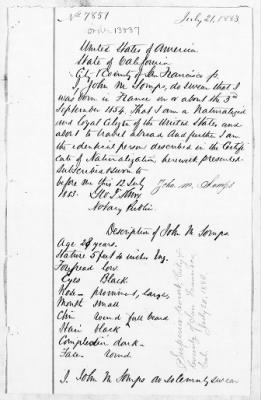 No 7851 July 21, 1883
order 13337
United States of America
State of California
City & County of San Francisco ss
I, John M. Somps, do swear that I
was born in France on or about the 3rd
September 1854. That I am a Naturalized
and loyal citizen of the United States and
about to travel abroad and further I am
the identical person described in the Certifi-
cate of Naturalization herewith presented.
Subscribed & sworn to
before me this 12 July John M. Somps
1883. Geo T.
Notary Public
Description of John M Somps
Age 28 years.
Stature 5 feet 6 inches Eng.
Forehead low.
Eyes Black
Nose prominent, large
Mouth small
Chin round full beard
Hair black
Complexion dark
Face round
Superior Court, City &
County of San Francisco
Cal.
I. John M Somps do solemnly swear